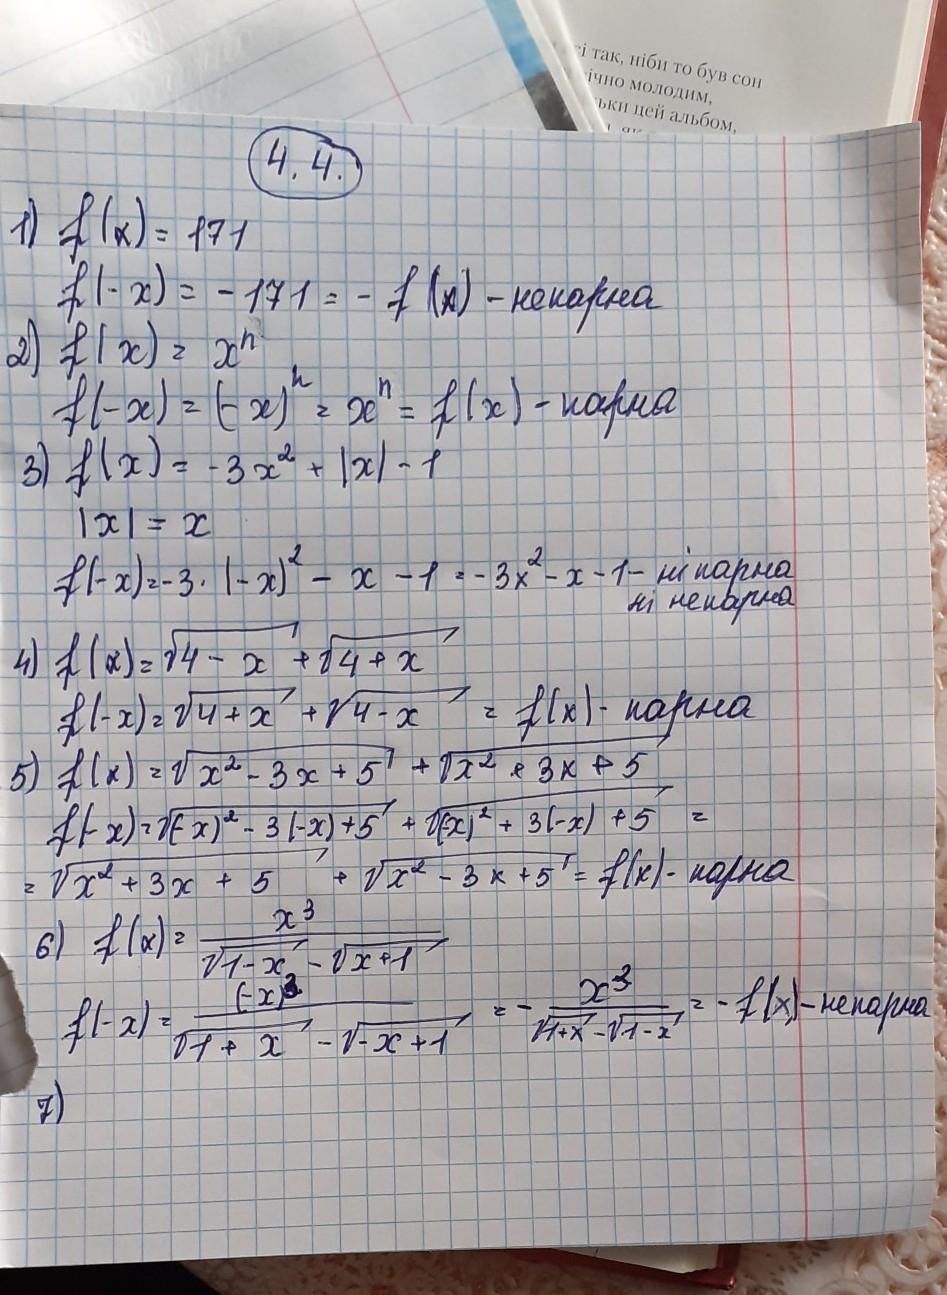 сі так, ніби то був сон
ічно молодим,
ьки цей альбом,
4.4.
1) f(x) = 171
f(-x) = -171 = -f(x) - непарна
2) f(x) = xⁿ
f(-x) = (-x)ⁿ = xⁿ = f(x) - парна
3) f(x) = -3x² + |x| - 1
|x| = x
f(-x) = -3·(-x)² - x - 1 = -3x² - x - 1 - ні парна
ні непарна
4) f(x) = √(4 - x) + √(4 + x)
f(-x) = √(4 + x) + √(4 - x) = f(x) - парна
5) f(x) = √(x² - 3x + 5) + √(x² + 3x + 5)
f(-x) = √((-x)² - 3(-x) + 5) + √((-x)² + 3(-x) + 5) =
= √(x² + 3x + 5) + √(x² - 3x + 5) = f(x) - парна
6) f(x) = x³ / (√(1 - x) - √(x + 1))
f(-x) = (-x)³ / (√(1 + x) - √(-x + 1)) = - x³ / (√(1 + x) - √(1 - x)) = -f(x) - непарна
7)